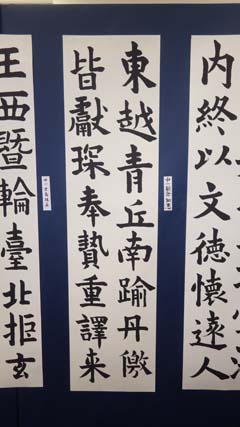 内終以文徳懷遠人
東越青丘南踰丹徼
皆獻琛奉贄重譯来
王西暨輪臺北拒玄